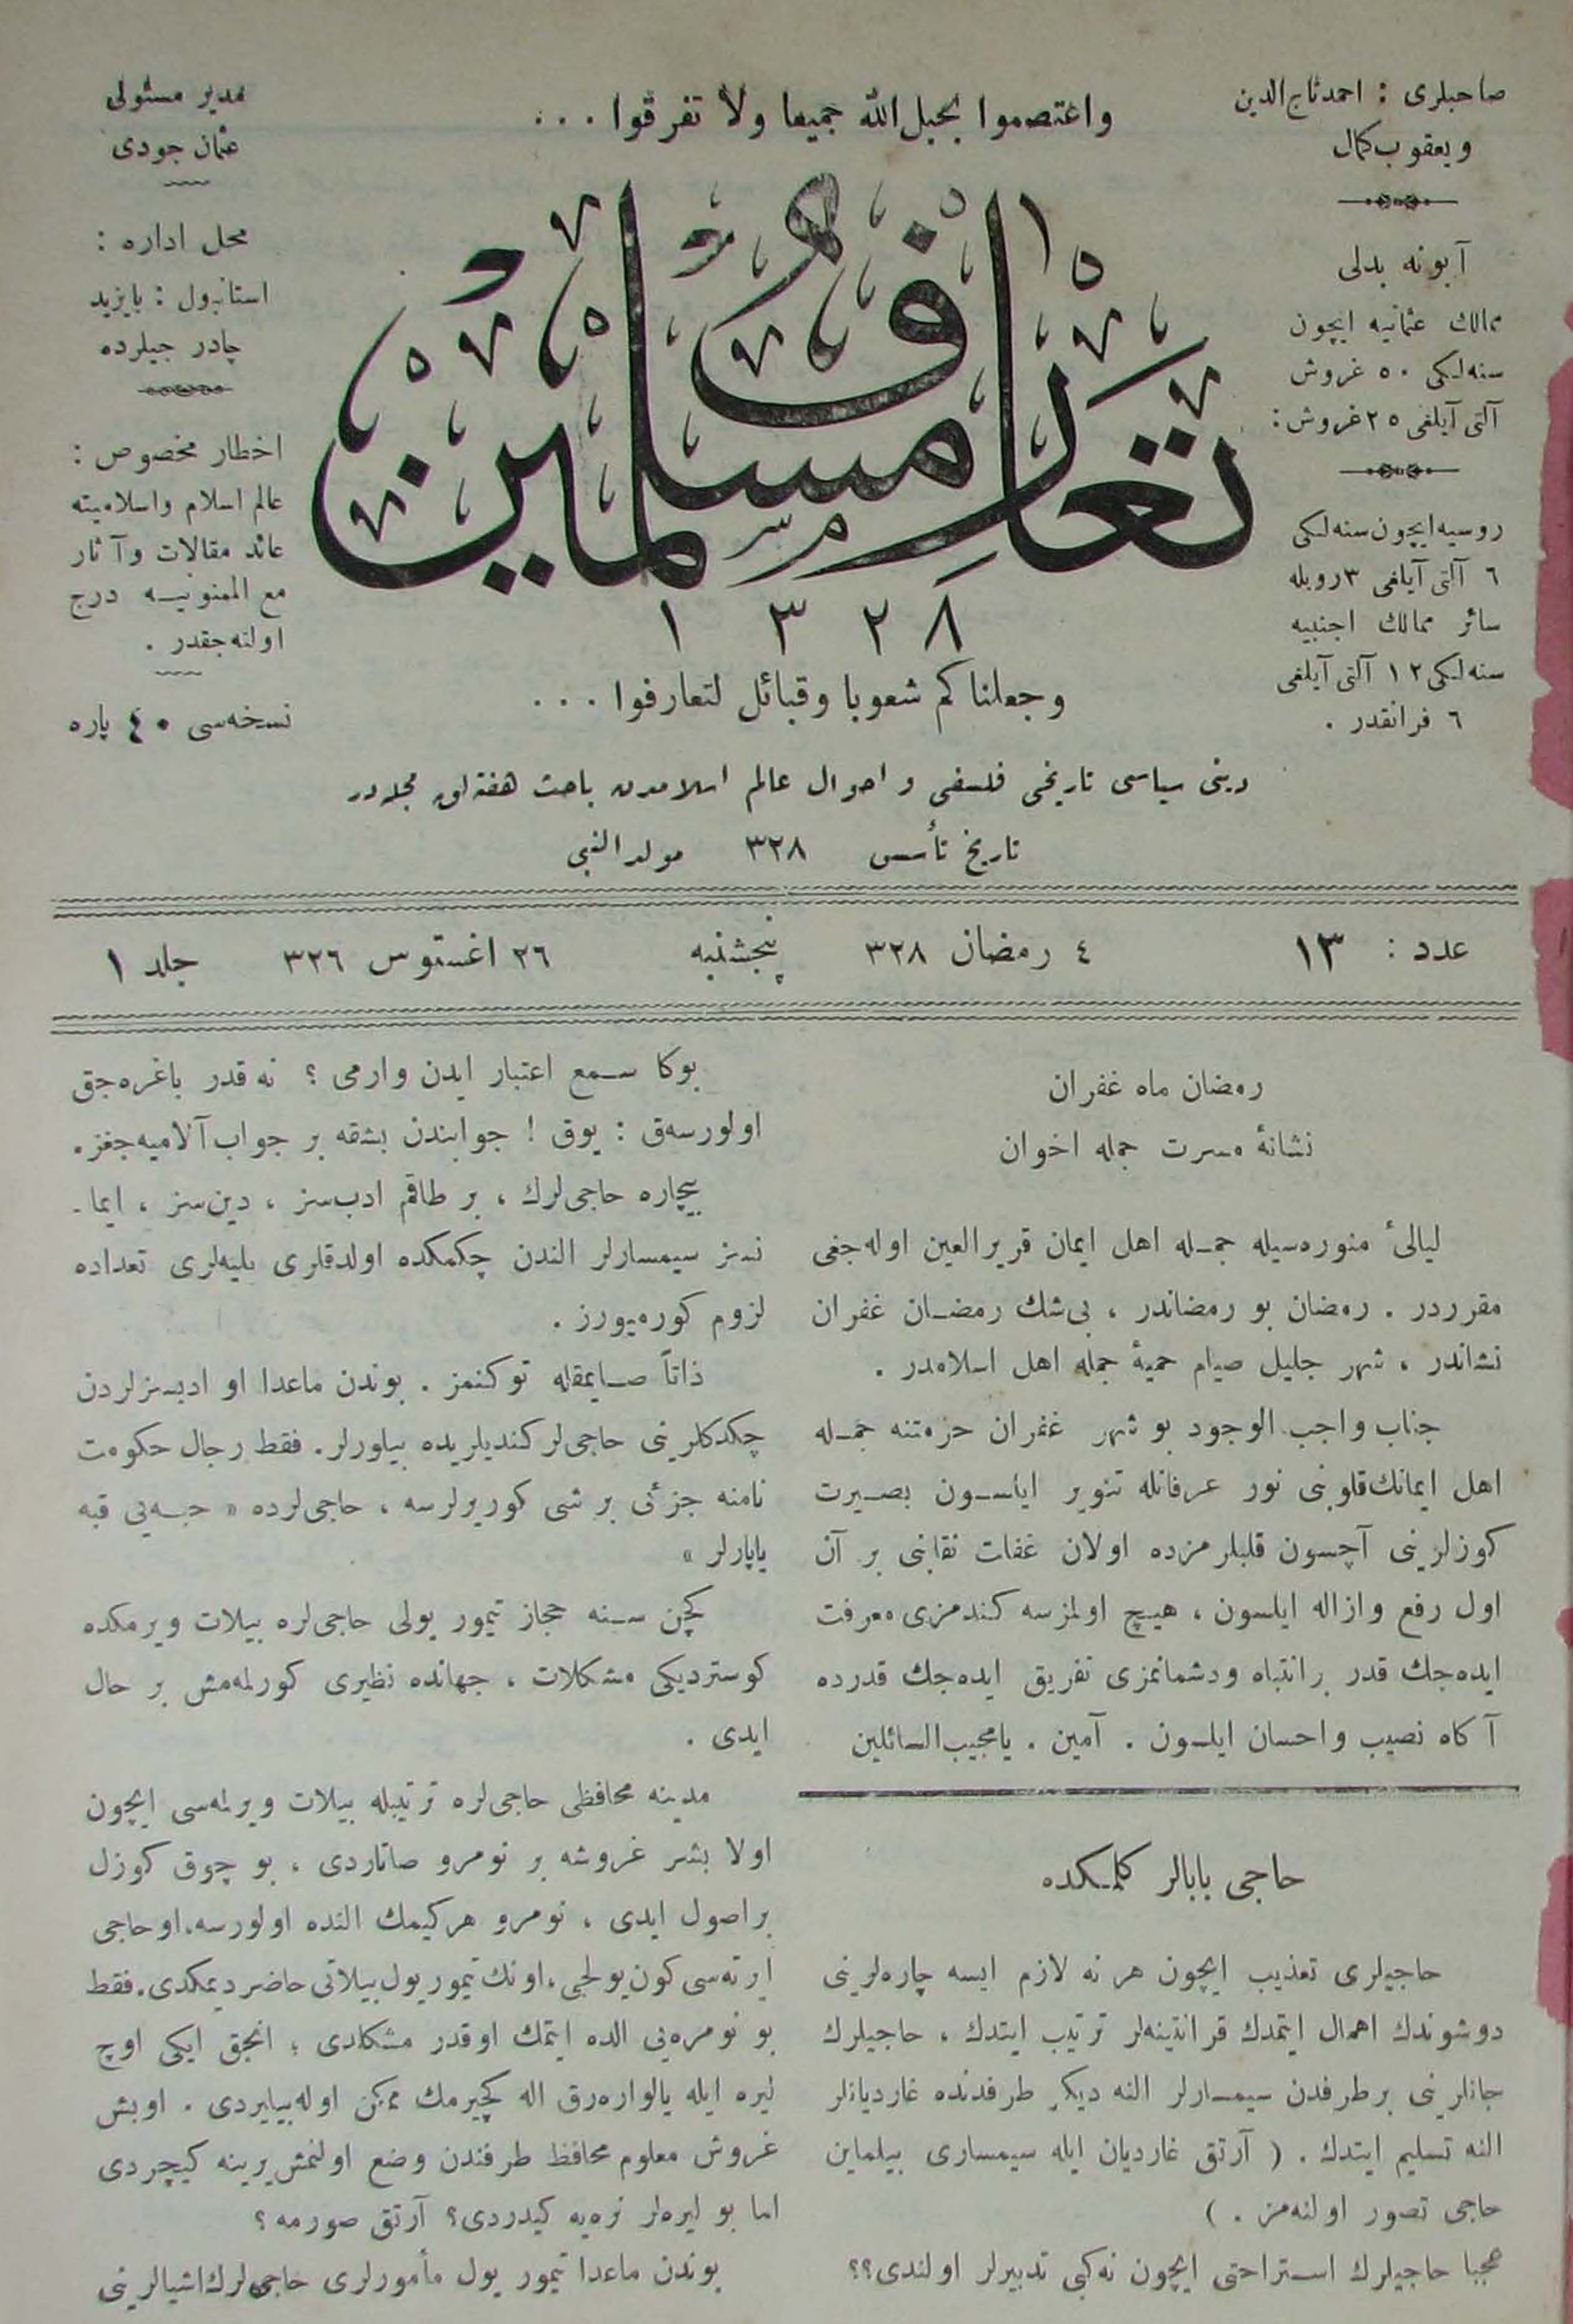 صاحبلری : احمد تاج الدین
و یعقوب کمال
آبونه بدلی
ممالك عثمانیه ایچون
سنه لکی ٥٠ غروش
آلتی آیلغی ٢٥ غروش :
روسیه ایچون سنه لکی
٦ آلتی آیلغی ٣ روبله
سائر ممالك اجنبیه
سنه لکی ١٢ آلتی آیلغی
٦ فرانقدر .
واعتصموا بحبل الله جمیعا ولا تفرقوا . . .
تعارف مسلمین
١٣٢٨
وجعلناکم شعوبا وقبائل لتعارفوا . . .
مدیر مسئولی
عثمان جودی
محل اداره :
استانبول : بایزید
چادر جیلرده
اخطار مخصوص :
عالم اسلام واسلامیته
عائد مقالات وآثار
مع الممنونیه درج
اولنه جقدر .
نسخه سی ٤٠ پاره
دینی سیاسی تاریخی فلسفی و احوال عالم اسلامدن باحث هفته لق مجله در
تاریخ تأسس ٣٢٨ مولد النبی
عدد : ١٣ ٤ رمضان ٣٢٨ پنجشنبه ٢٦ اغستوس ٣٢٦ جلد ١
رمضان ماه غفران
نشانهٔ مسرت جمله اخوان
لیالیٔ منوره سیله جمله اهل ایمان قریر العین اوله جغی
مقرردر . رمضان بو رمضاندر ، بی شك رمضان غفران
نشاندر ، شهر جلیل صیام حمیهٔ جمله اهل اسلامدر .
جناب واجب الوجود بو شهر غفران حرمتنه جمله
اهل ایمانك قلوبنی نور عرفانله تنویر ایلسون بصیرت
کوزلرینی آچسون قلبلرمزده اولان غفلت نقابنی بر آن
اول رفع و ازاله ایلسون ، هیچ اولمزسه کندمزی معرفت
ایده جك قدر بر انتباه ودشمانمزی تفریق ایده جك قدرده
آکاه نصیب واحسان ایلسون . آمین . یا مجیب السائلین
حاجی بابالر کلمکده
حاجیلری تعذیب ایچون هر نه لازم ایسه چاره لرینی
دوشوندك اهمال ایتمدك قرانتینه لر ترتیب ایتدك ، حاجیلرك
جانلرینی بر طرفدن سیمسارلر النه دیکر طرفدنده غاردیانلر
النه تسلیم ایتدك . ( آرتق غاردیان ایله سیمساری بیلماین
حاجی تصور اولنه مز . )
عجبا حاجیلرك استراحتی ایچون نه کبی تدبیرلر اولندی؟؟
بوکا سمع اعتبار ایدن وارمی ؟ نه قدر باغره جق
اولورسه ق : یوق ! جوابندن بشقه بر جواب آلامیه جغز .
بیچاره حاجی لرك ، بر طاقم ادب سز ، دین سز ، ایما ـ
نسز سیمسارلر الندن چکمکده اولدقلری بلیه لری تعداده
لزوم کورمیورز .
ذاتاً صایمقله توکنمز . بوندن ماعدا او ادبسزلردن
چکدکلرینی حاجی لر کندیلریده بیلورلر . فقط رجال حکومت
نامنه جزئی بر شی کوریرلرسه ، حاجی لرده « حبه یی قبه
یاپارلر »
کچن سنه حجاز تیمور یولی حاجی لره بیلات ویرمکده
کوستردیکی مشکلات ، جهانده نظیری کورلمه مش بر حال
ایدی .
مدینه محافظی حاجی لره ترتیبله بیلات ویرلمه سی ایچون
اولا بشر غروشه بر نومرو صاتاردی ، بو چوق کوزل
بر اصول ایدی ، نومرو هر کیمك النده اولورسه، او حاجی
ایرته سی کون یولجی ، اونك تیمور یول بیلاتی حاضر دیمکدی. فقط
بو نومره یی الده ایتمك او قدر مشکلدی ؛ انجق ایکی اوچ
لیره ایله یالواره رق اله کچیرمك ممکن اوله بیلیردی . او بش
غروش معلوم محافظ طرفندن وضع اولنمش یرینه کیچردی
اما بو لیره لر نره یه کیدردی؟ آرتق صورمه ؟
بوندن ماعدا تیمور یول مأمورلری حاجی لرك اشیالرینی